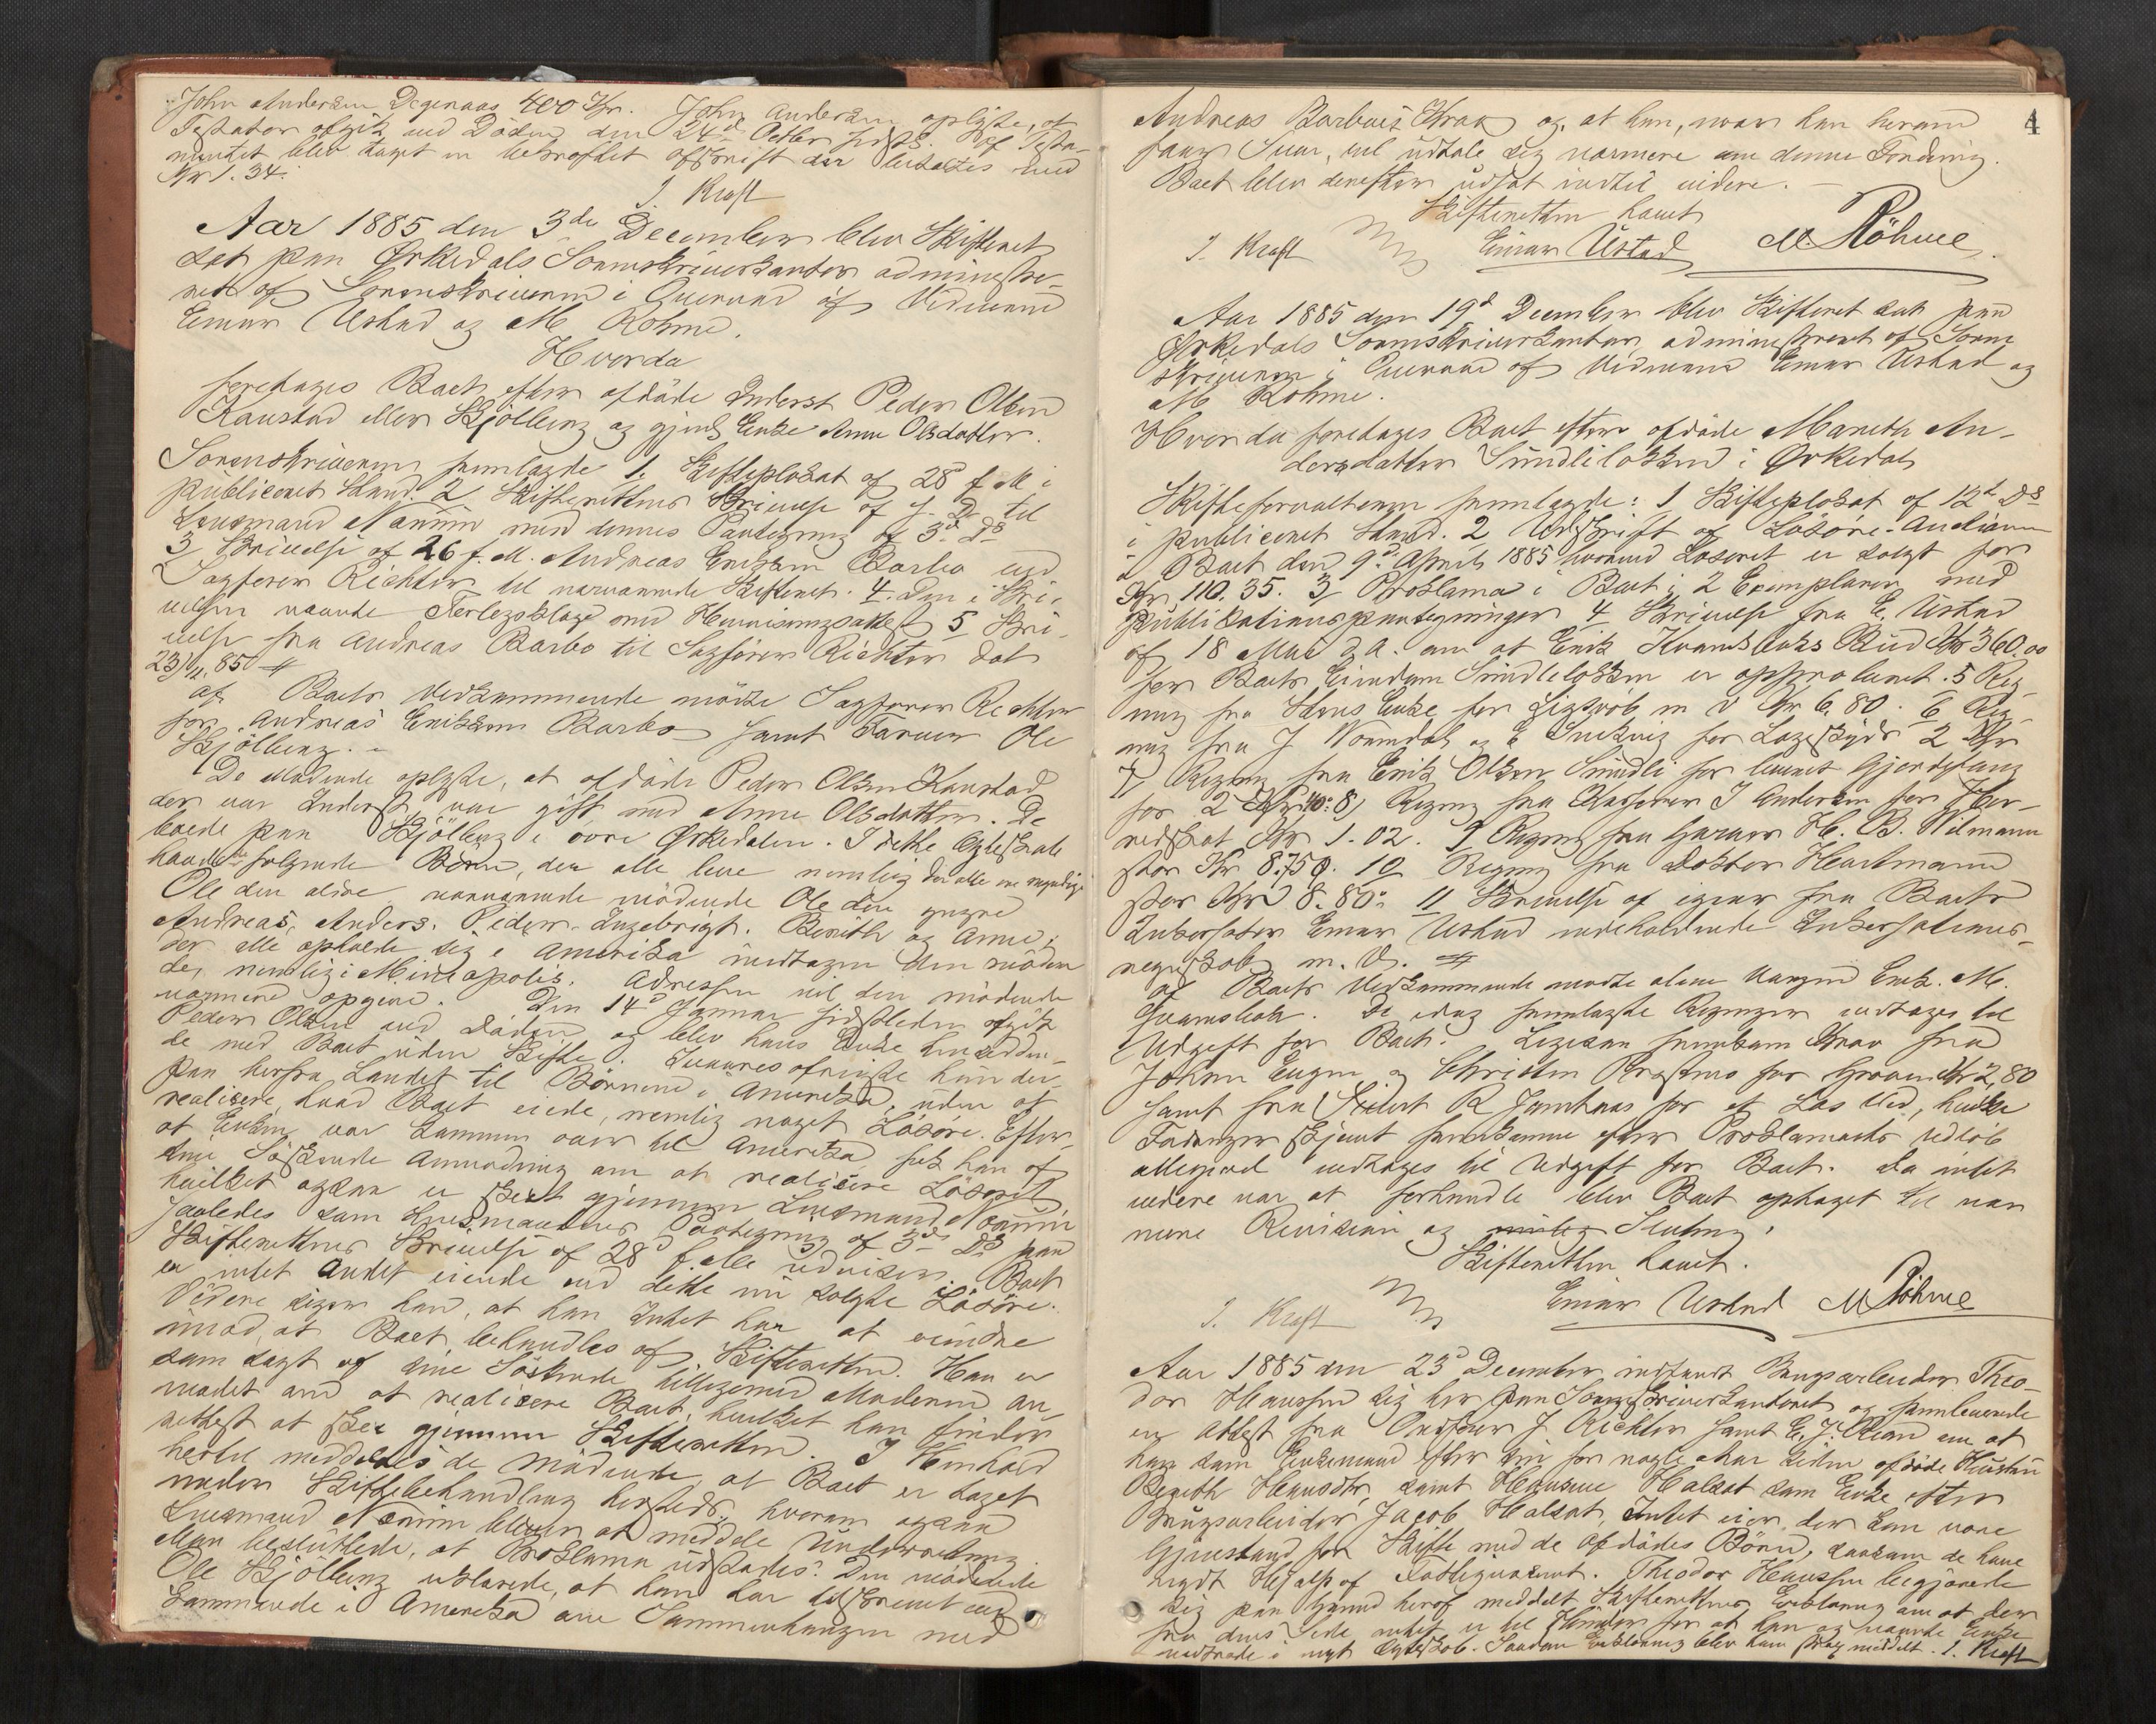 John Andersen Degenaas 400 Kr. John Andersen oplyste, at
Testator afgik ved Döden den 24de Octbr sidstl. Af Testa-
mentet blev taget en bekræftet Afskrift der betaltes med
Kr 1.34.
J. Kraft
Aar 1885 den 3de December blev Skifteret
sat paa Ørkedals Sorenskriverkontor administre-
ret af Sorenskriveren i Overvær af Vidnerne
Einar Ustad og M Röhme.
Hvorda
foretoges Boet efter afdöde Inderst Peder Olsen
Kaustad eller Skjölberg og gjenl. Enke Anne Olsdatter.
Sorenskriveren fremlagde 1, Skifteplakat af 28de f. M. i
publiceret Stand. 2 Skifterettens Skrivelse af s. D. til
Lensmand Nonnin med dennes Paategning af 3de Ds
3 Skrivelse af 26 f. M. Andreas Eriksen Barbo ved
Sagförer Richter til nærværende Skifteret. 4. Den i Skri-
velsen nævnte Forligsklage med Henvisningsattest 5 Skri-
velse fra Andreas Barbo til Sagförer Richter dat
23/11. 85
Af Boets Vedkommende mödte Sagförer Richter
for Andreas Eriksen Barbo samt Farver Ole
Skjölberg. -
De Mödende oplyste, at afdöde Peder Olsen Kaustad
der var Inderst, var gift med Anne Olsdatter. De
boede paa Skjölberg i övre Ørkedalen. I dette Egteskab
havde følgende Börn, der alle leve nemlig der alle ere myndige
Ole den ældre, nærværende mödende Ole den yngre
Andreas, Anders, Peder, Ingebrigt, Berith og Anne,
der alle opholde sig i Amerika undtagen den möden-
de, nemlig i Mineapolis. Adressen vil den mödende
nærmere opgive. Den 14de Januar sidstleden afgik
Peder Olsen ved Döden og blev hans Enke hensidden-
de med Boet uden Skifte. Ivaares afreiste hun der-
paa herfra Landet til Börnene i Amerika, uden at
realisere, hvad Boet eiede, nemlig noget Lösöre. Efter-
at Enken var kommen over til Amerika, fik han af
sine Söskende Anmodning om at realisere Lösöret
hvilket ogsaa er skeet gjennem Lensmand Nonnin
saaledes som Lensmandens Paategning af 3de Ds paa
Skifterettens Skrivelse af 28de f. M. udviser. Boet
er intet Andet eiende end dette nu solgte Lösöre.
Videre siger han, at han Intet har at erindre
imod, at Boet behandles af Skifteretten. Han er
som sagt af sine Söskende tilligemed Moderen an-
modet om at realisere Boet, hvilket han finder
rettest at ske gjennem Skifteretten. I Henhold
hertil meddeltes de Mödende, at Boet er taget
under Skiftebehandling hersteds, hvorom ogsaa
Lensmand Nonnin bliver at meddele Underretning.
Man besluttede, at Proklama udstedes. Den mödende
Ole Skjölberg erklærede, at han har tilskrevet sine
Sammende i Amerika om Sammenhængen med
4
Andreas Barbois Krav og, at han, naar han herom
faar Svar, vil udtale sig nærmere om denne Fordring.
Boet blev derefter udsat indtil videre. -
Skifteretten hævet
J. Kraft Einar Ustad M Röhme
Aar 1885 den 19de December blev Skifteret sat paa
Ørkedals Sorenskriverkontor administreret af Soren
skriveren i Overvær af Vidnerne Einar Ustad og
M Röhme.
Hvorda foretoges Boet efter afdöde Marith An-
dersdatter Sundliløkken i Ørkedal
Skifteforvalteren fremlagde: 1 Skifteplakat af 12te Ds
i publiceret Stand. 2 Udskrift af Lösöre-Auctionen
i Boet den 9de April 1885 hvorved Lösöret er solgt for
Kr 110. 35. 3 Proklama i Boet i 2 Exemplarer med
Publikationspaategninger 4 Skrivelse fra E. Ustad
af 18 Mai d. A. om at Erik Kvamsløks Bud Kr 360.00
for Boets Eiendom Sundliløkken er approberet. 5 Reg-
ning fra Idens Enke for Ligsvöb m v Kr 6. 80. 6 Reg-
ning fra J Wormdal og E Snekvig for Lægeskyds 2 Kr
7 Regning fra Erik Olsen Sundli for leveret Gjerdefang
for 2 Kr 40: 8) Regning fra Kasserer J Andersen for Her-
redskat Kr 1.02. 9 Regning fra Garver H. B. Wilmann
stor Kr 8.75. 10 Regning fra Doktor Hartmann
stor Kr 8. 80: 11 Skrivelse af igaar fra Boets
Inkassator Einar Ustad indeholdende Inkassations-
regnskab m. v.
Af Boets Vedkommende mødte alene Værgen Erik. M.
Kvamsløk. De idag fremlagte Regninger indtages til
Udgift for Boet. Ligesaa fremkom Krav fra
Johan Eugen og Christen Rasmus for Graven Kr 2,80
samt fra Sivert R Jamhaas for et Lös Ved, hvilke
Fordringer skjønt fremkomne efter Proklamaets Udløb
alligevel indtages til Udgift for Boet. Da intet
videre var at forhandle blev Boet optaget til nær
mere Revision og Slutning.
Skifteretten hævet.
J. Kraft Einar Ustad M Röhme
Aar 1885 den 23de December indfandt Brugsarbeider Theo-
dor Hanssen sig her paa Sorenskriverkontoret og fremleverede
en Attest fra Ordfører J. Richter samt E. J. Rian om at
han som Enkemand efter sin for nogle Aar siden afdøde Hustru
Berith Hansdtr, samt Hansine Halsat som Enke efter
Brugsarbeider Jacob Halsat, Intet eier, der kan være
Gjenstand for Skifte med de Afdødes Börn, saasom de have
nydt Hjælp af Fattigvæsenet. Theodor Hanssen begjærede
sig paa Grund heraf meddelt Skifterettens Erklæring om at der
fra dens Side intet er til Hinder for at han og nævnte Enke
indtræde i nyt Egteskab. Saadan Erklæring blev ham strax meddelt. J. Kraft